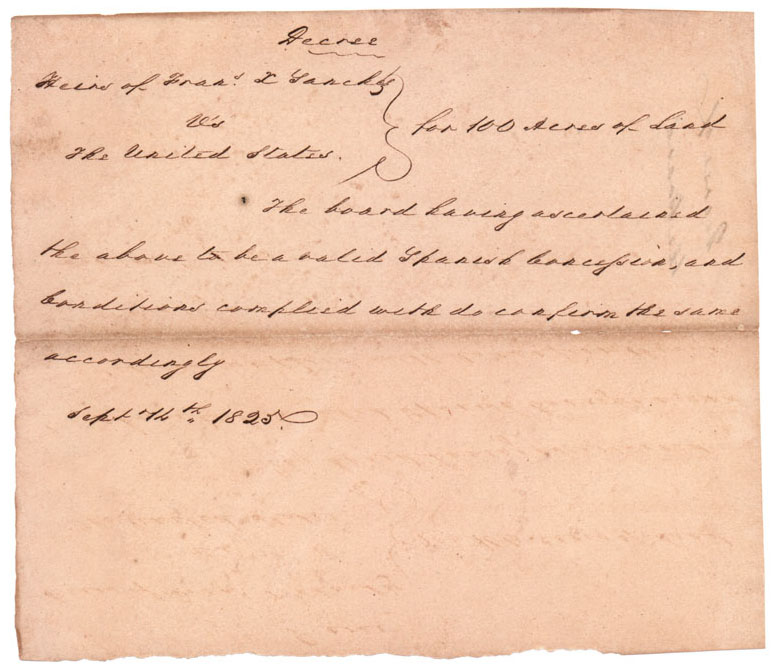 Decree
Heirs of Frans. X Sanchez
Vs
The United States.
for 100 Acres of Land
The board having ascertained
the above to be a valid Spanish Concession, and
Conditions complied with do confirm the same
accordingly
Sept 14th, 1825.